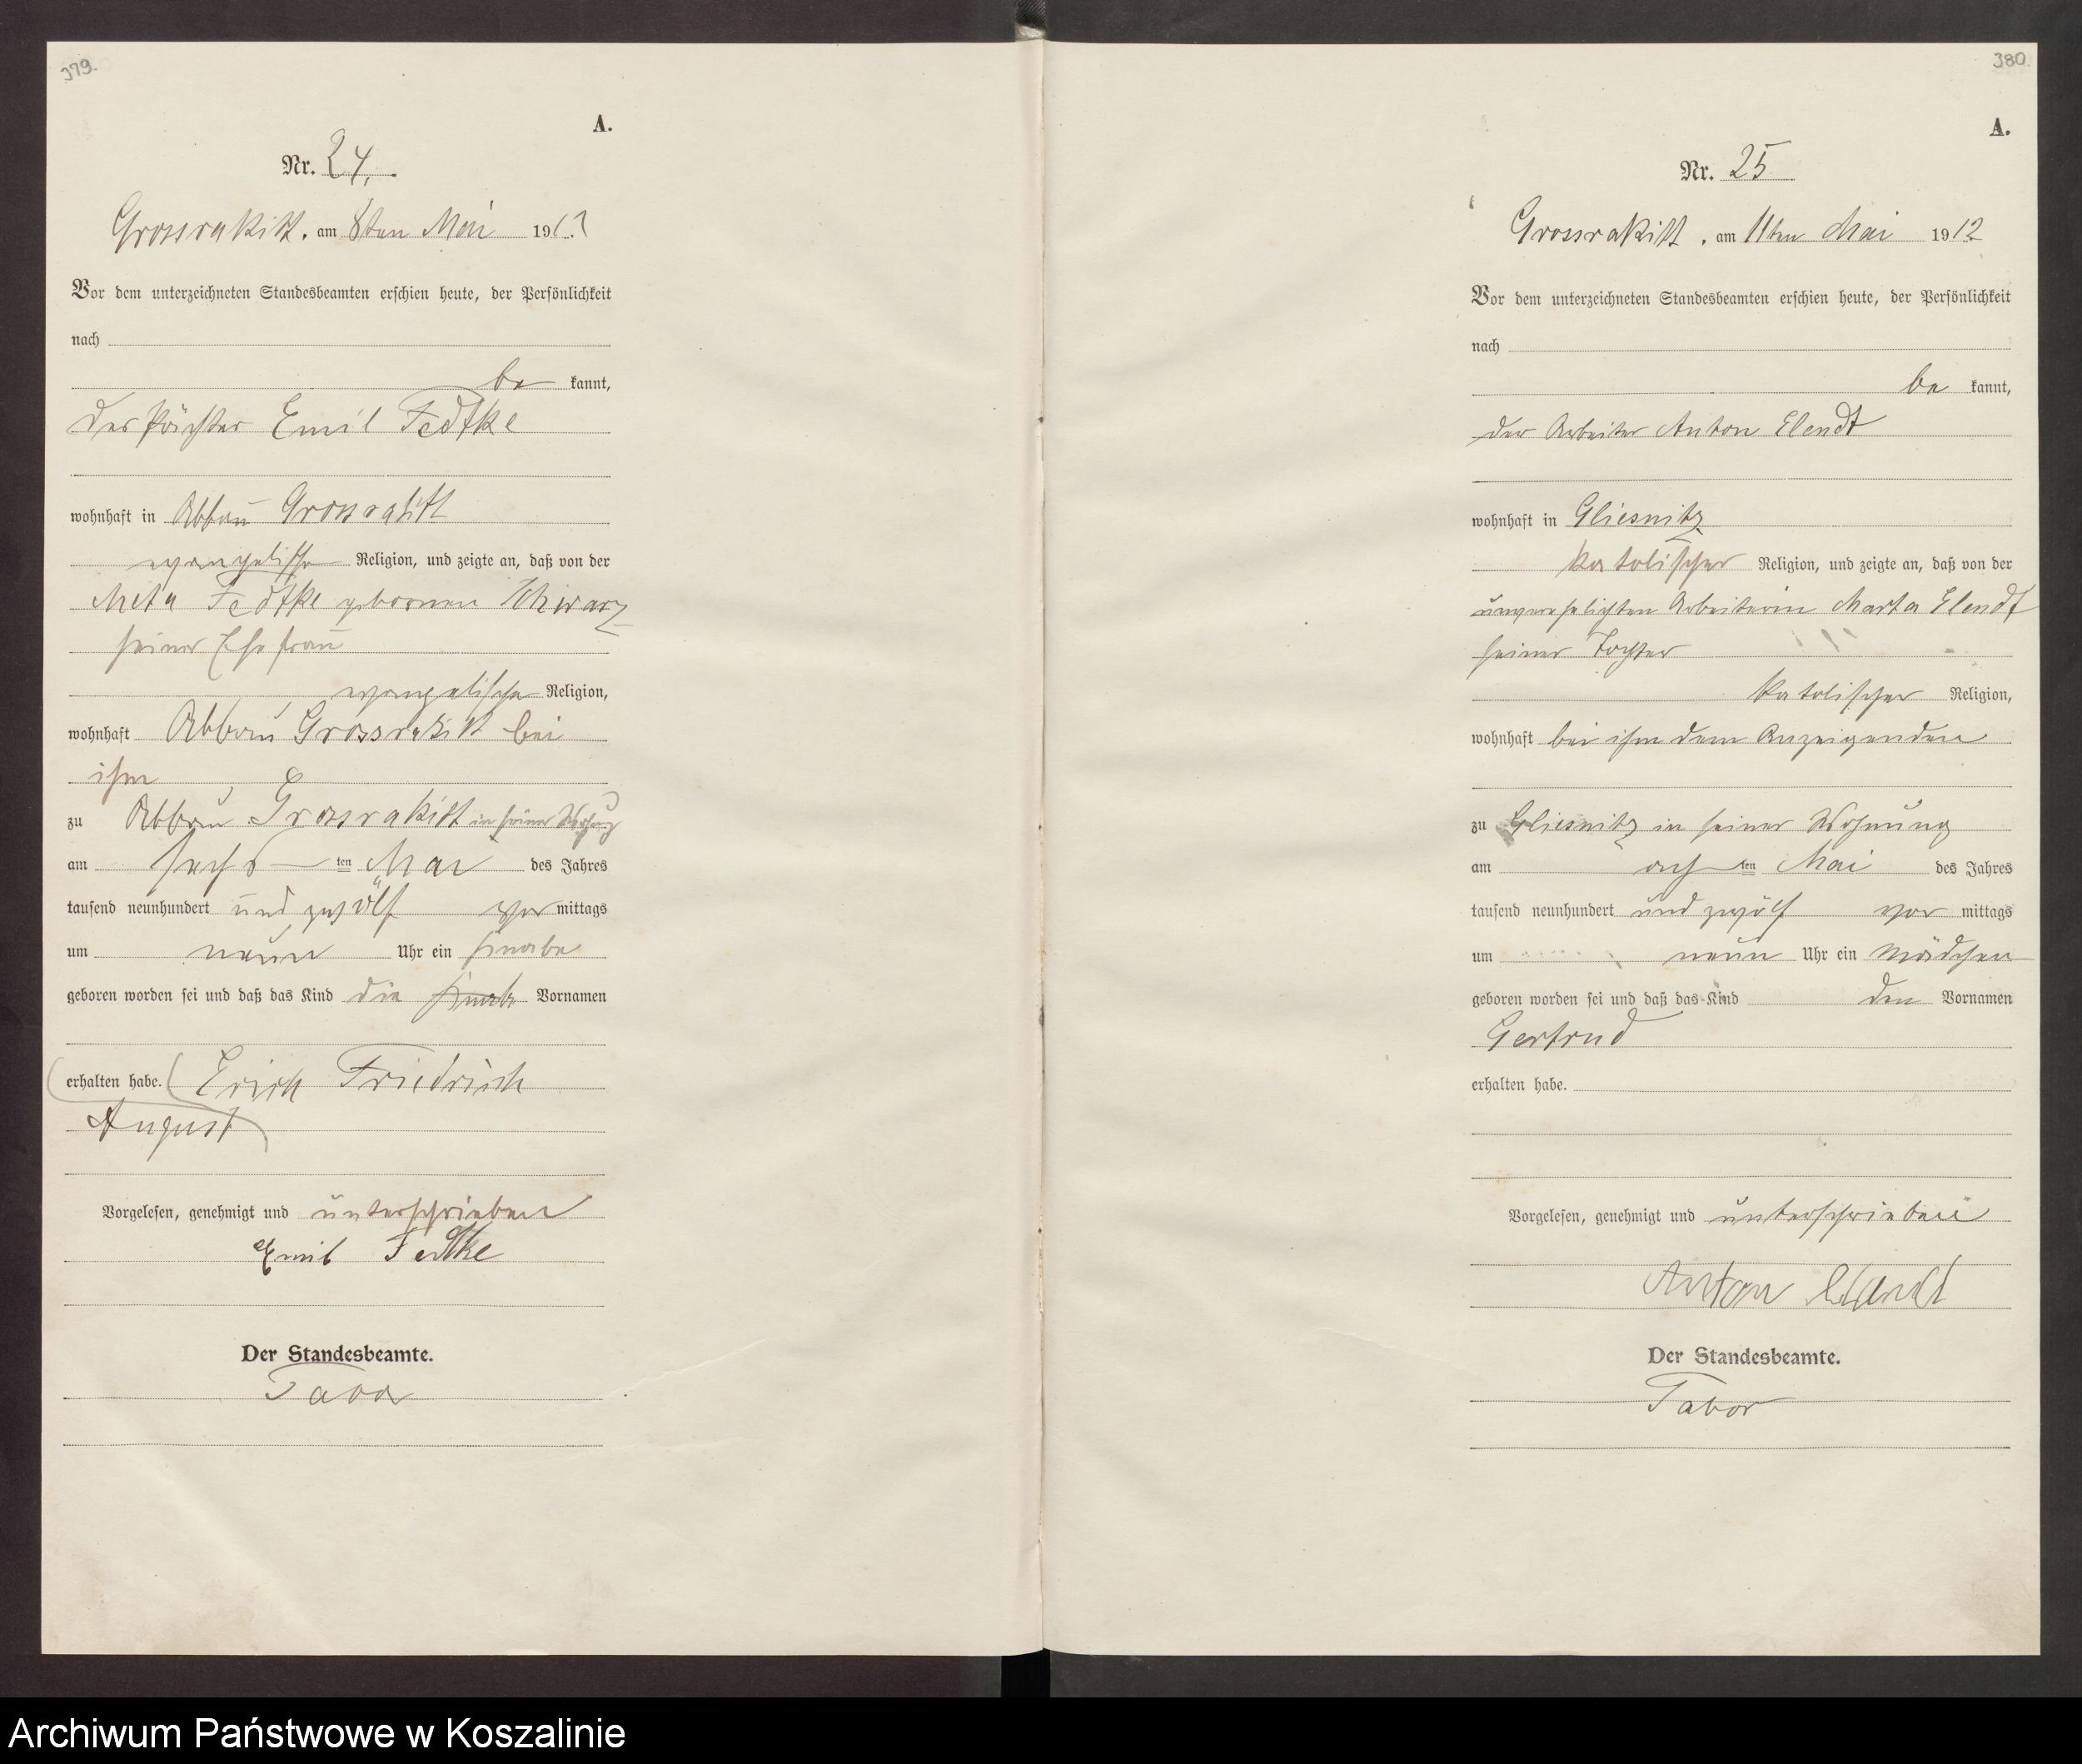 379.
A.
Nr. 24.
Grossrakitt, am 8ten Mai 1912
Vor dem unterzeichneten Standesbeamten erschien heute, der Persönlichkeit
nach
be kannt,
der Pächter Emil Fedtke
wohnhaft in Abbau Grossrakitt
evangelischer Religion, und zeigte an, daß von der
Meta Fedtke geborenen Schwarz
seiner Ehefrau
evangelischer Religion,
wohnhaft Abbau Grossrakitt bei
ihm
zu Abbau Grossrakitt in seiner Wohnung
am sechsten Mai des Jahres
tausend neunhundert und zwölf vormittags
um neun Uhr ein Knabe
geboren worden sei und daß das Kind die Knabe Vornamen
erhalten habe. Erich Friedrich
August
Vorgelesen, genehmigt und unterschrieben
Emil Fedtke
Der Standesbeamte.
Tabor
380.
A.
Nr. 25
Grossrakitt, am 11ten Mai 1912
Vor dem unterzeichneten Standesbeamten erschien heute, der Persönlichkeit
nach
be kannt,
der Arbeiter Anton Elendt
wohnhaft in Gliesnitz
katolischer Religion, und zeigte an, daß von der
unverehelichten Arbeiterin Marta Elendt
seiner Tochter
katolischer Religion,
wohnhaft bei ihm dem Anzeigenden
zu Gliesnitz in seiner Wohnung
am achten Mai des Jahres
tausend neunhundert und zwölf vor mittags
um neun Uhr ein Mädchen
geboren worden sei und daß das Kind den Vornamen
Gertrud
erhalten habe.
Vorgelesen, genehmigt und unterschrieben
Anton Elendt
Der Standesbeamte.
Tabor
Archiwum Państwowe w Koszalinie